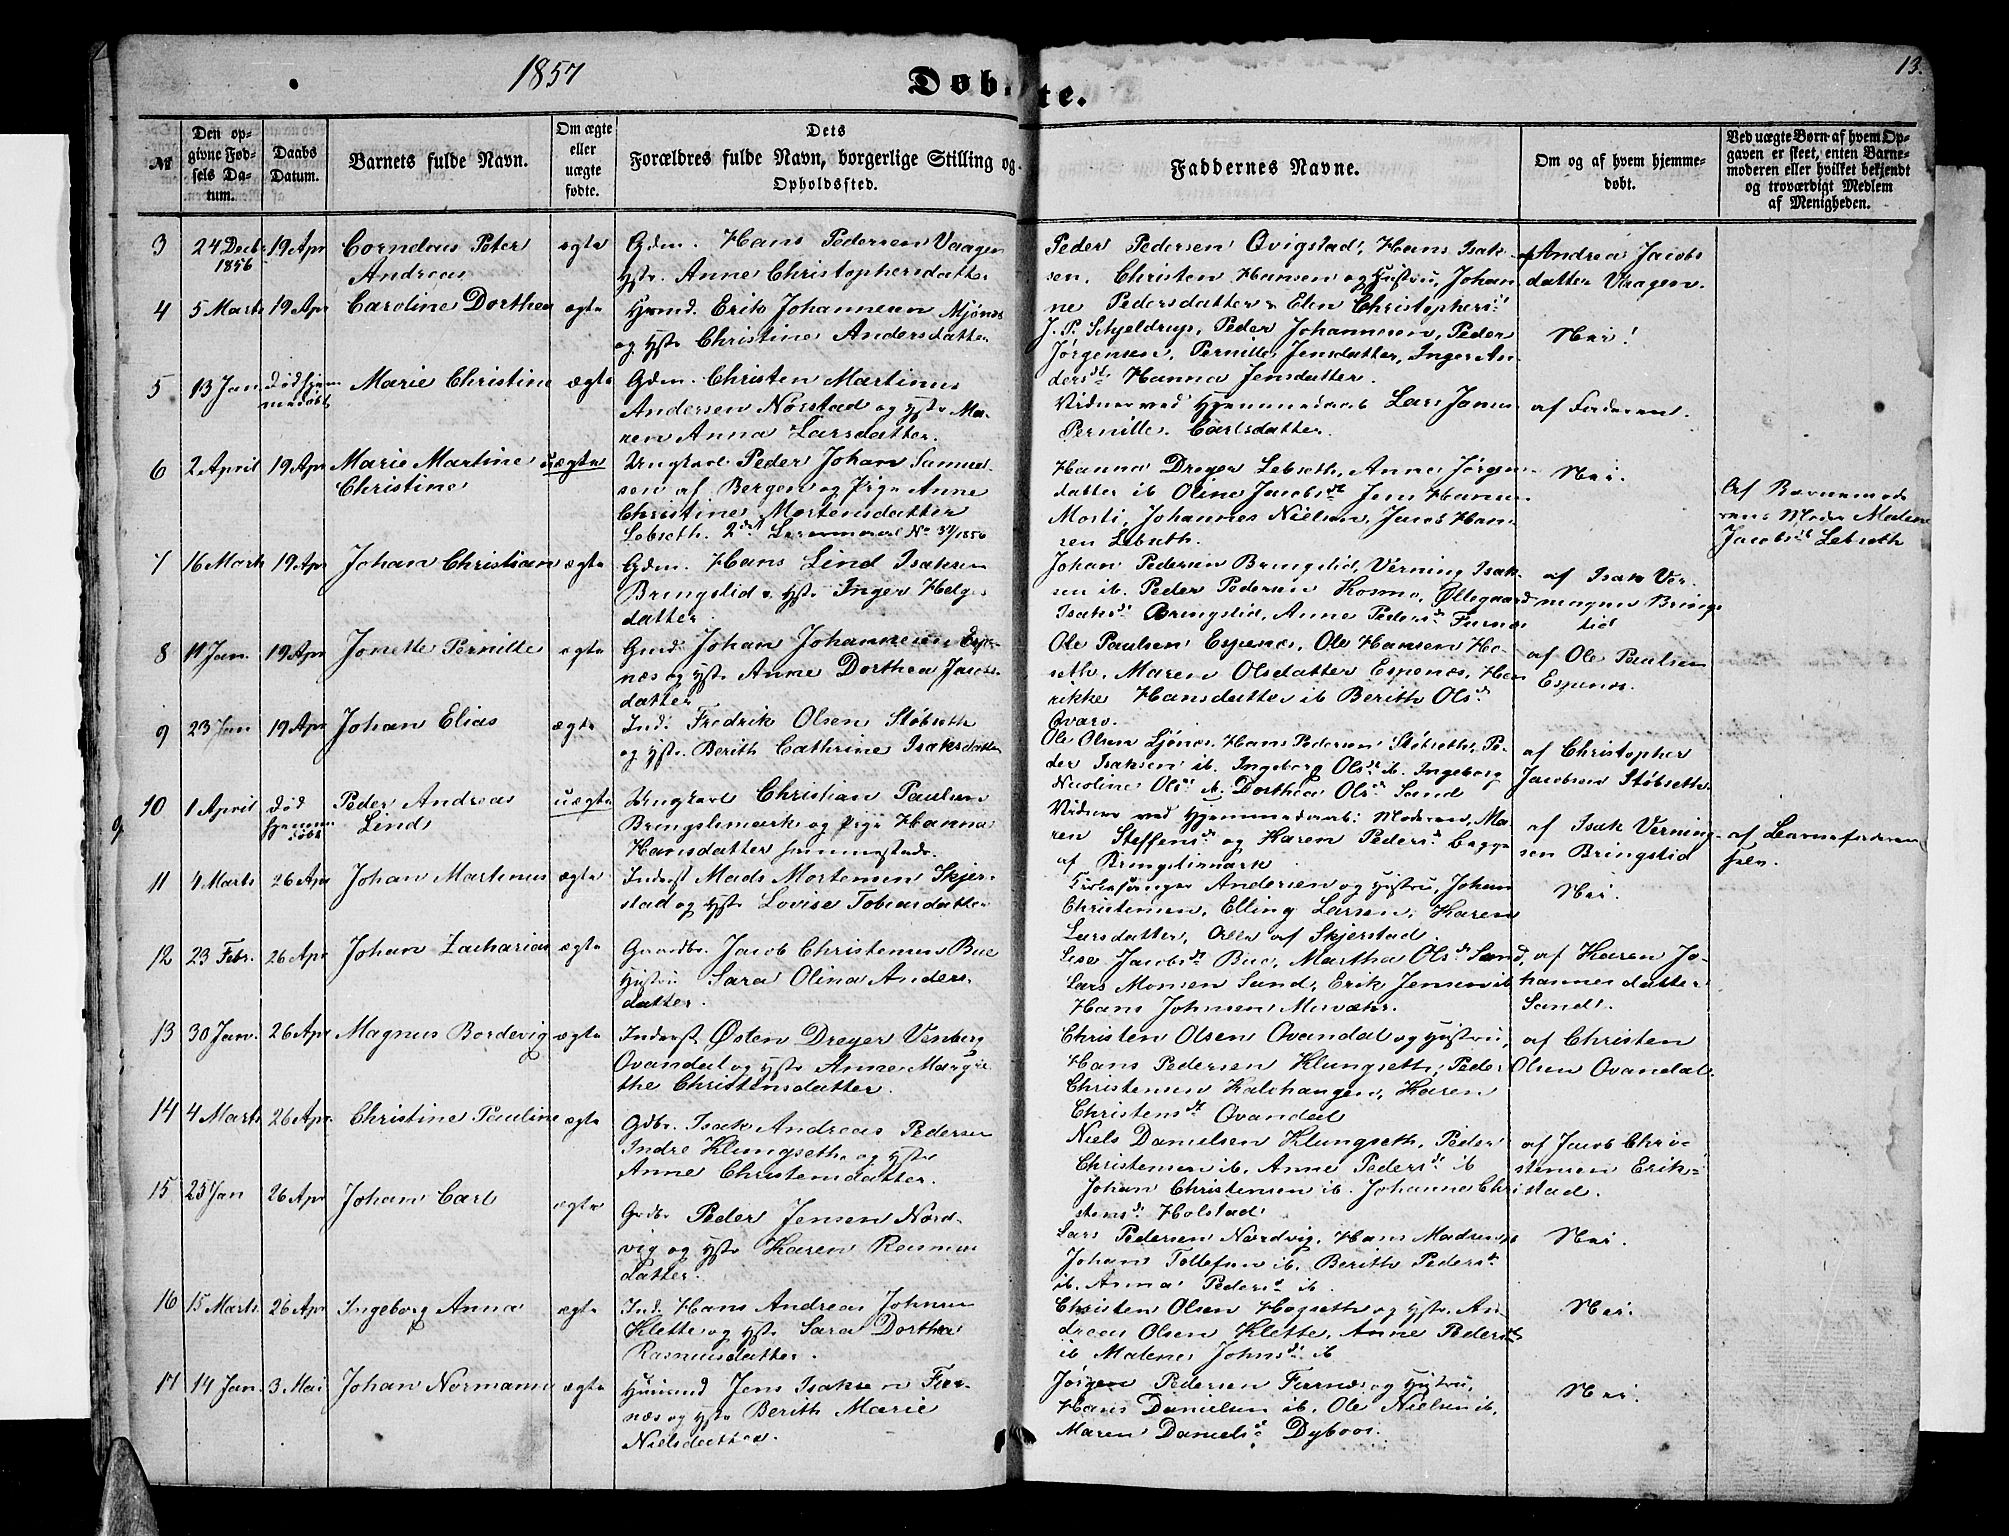 1857
13.
Døbte.
№
Den op-
givne Fød-
sels Da-
tum.
Daabs
Datum.
Barnets fulde Navn.
Om ægte
eller
uægte
fødte.
Dets
Forældres fulde Navn, borgerlige Stilling og
Opholdssted.
Faddernes Navne.
Om og af hvem hjemme-
døbt.
Ved uægte Børn af hvem Op-
gaven er skeet, enten Barne-
moderen eller hvilket bekjendt
og troværdigt Medlem
af Menigheden.
3 24 Decbr 1856 19 Apr Cornelius Peter
Andreas
ægte
Gdm. Hans Pedersen Vaagen
Hst. Anne Christophersdatter
Peder Pedersen Qvigstad, Hans Isak-
sen, Christen Hansen og Hustru, Johan
ne Pedersdatter Elen Christophersdt
af Andrea Jacobs
datter Vaagen.
4 5 Marts 19 Apr Caroline Dorthea ægte
Husmd. Erik Johannesen Mjønæs
og Hst. Christine Andersdatter
J. P. Schjeldrup, Peder Johannesen, Peder
Jørgensen, Pernille Jensdatter, Inger An-
dersdt. Hanna Jensdatter.
Nei!
5 13 Jan død hjem
medøbt
Marie Christine ægte
Gdm. Christen Martinus
Andersen Norstad og Hst. Ma-
ren Anna Larsdatter.
Vidner ved Hjemmedaab Lars
Pernille Carlsdatter.
af Faderen.
6 2 April 19 Apr Marie Martine
Christine
uægte
Ungkarl Peder Johan Samuel-
sen af Bergen og Pige Anne
Christine Mortensdatter
Løbseth. 2det Leiermaal No 34/1856
Hanna Dreyer Løbseth, Anne Jørgen
datter ib Oline Jacobsdt Jens Hansen
Morti, Johannes Nielsen, Jacob Han-
sen Løbseth.
Nei.
Af Barnemod
rens Moder Malene
Jacobsdt Løbseth
7 16 Marts 19 Apr Johan Christian ægte
Gdm. Hans Lind Isaksen
Bringslid & Hst. Inger Helges
datter.
Johan Pedersen Bringslid, Verning Isak-
sen ib. Peder Pedersen Kosmo, Øllegaard
Isaksdt Bringslid, Anne Pedersdt Furnæs
af Isak Ver-
ningsen Brings
lid
8 11 Jan. 19 Apr Jonette Pernille ægte
Gmd. Johan Johannesen Espe-
næs og Hst. Anne Dorthea Jacobs
datter
Ole Paulsen Espenæs, Ole Hansen Ho-
seth, Maren Olsdatter Espenæs, Hen
rikke Hansdatter ib Berith Olsdt
Qvarv.
af Ole Paulsen
Espenæs.
9 23 Jan 19 Apr Johan Elias ægte
Ind. Fredrik Olsen Støbseth
og Hst. Berith Cathrine Isaksdatter
Ole Olsen Ljønæs, Hans Pedersen Støbseth, Pe-
der Isaksen ib. Ingeborg Olsdt ib. Ingeborg
Nicoline Olsdt ib. Dorthea Olsdt Sand
af Christopher
Jacobsen Støbseth
10 1 April død
hjemme
døbt
Peder Andreas
Lind
uægte
Ungkarl Christian Paulsen
Bringslimark og Pige Hanna
Hansdatter sammestæds.
Vidner ved Hjemmedaab: Moderen, Ma-
ren Steffensdt og Karen Pedersdt begge
af Bringslimark
af Isak Verning-
sen Bringslid
af Barnefaderen
selv.
11 4 Marts 26 Apr Johan Martinus ægte
Inderst Mads Mortensen Skjer-
stad og Hst. Lovise Tobiasdatter
Kirkesanger Andersen og Hustru, Johan
Christensen, Elling Larsen, Karen
Larsdatter, Alle af Skjerstad.
Nei.
12 23 Febr. 26 Apr Johan Zacharias ægte
Gaardbr. Jacob Christensen Bue
Hustru Sara Olina Anders-
datter.
Lise Jacobsdt Bue, Martha Olsdt Sand,
Lars Monsen Sand, Erik Jensen ib
Hans Johnsen Misvær.
af Karen Jo-
hannesdatter
Sand.
13 30 Jan. 26 Apr Magnus Bordevig ægte
Inderst Østen Dreyer Venberg
Qvandal og Hst. Anne Margre
the Christensdatter.
Christen Olsen Qvandal og Hustru,
Hans Pedersen Klungseth, Peder
Christensen Kalvhaugen, Karen
Christensdt Qvandal
af Christen
Olsen Qvandal.
14 4 Marts 26 Apr. Christine Pauline ægte
Gdbr. Isak Andreas Pedersen
Indre Klungseth og Hst.
Anne Christensdatter.
Niels Danielsen Klungseth, Peder
Christensen ib. Anne Pedersdt ib
Johan Christensen ib. Johanna Chri
stensdt Holstad
af Jacob Chri-
stensen Erik-
stad.
15 25 Jan 26 Apr Johan Carl ægte
Gdbr Peder Jensen Nord-
vig og Hst. Karen Rasmus
datter.
Lars Pedersen Nordvig, Hans Madsen ib
Johans Tollefsen ib. Berith Pedersdt
ib. Anna Pedersdt ib
Nei.
16 15 Marts 26 Apr Ingeborg Anna ægte
Ind. Hans Andreas Johnsen
Klette og Hst. Sara Dorthea
Rasmusdatter.
Christen Olsen Hogseth og Hst. An-
dreas Olsen Klette, Anne Pedersdt
ib Malene Johnsdt ib
Nei.
17 14 Jan. 3 Mai Johan Normann ægte
Husmand Jens Isaksen Fur-
næs og Hst. Berith Marie
Nielsdatter.
Jørgen Pedersen Furnæs og Hustru,
Hans Danielsen ib. Ole Nielsen ib.
Maren Danielsdt Dybvos.
Nei.